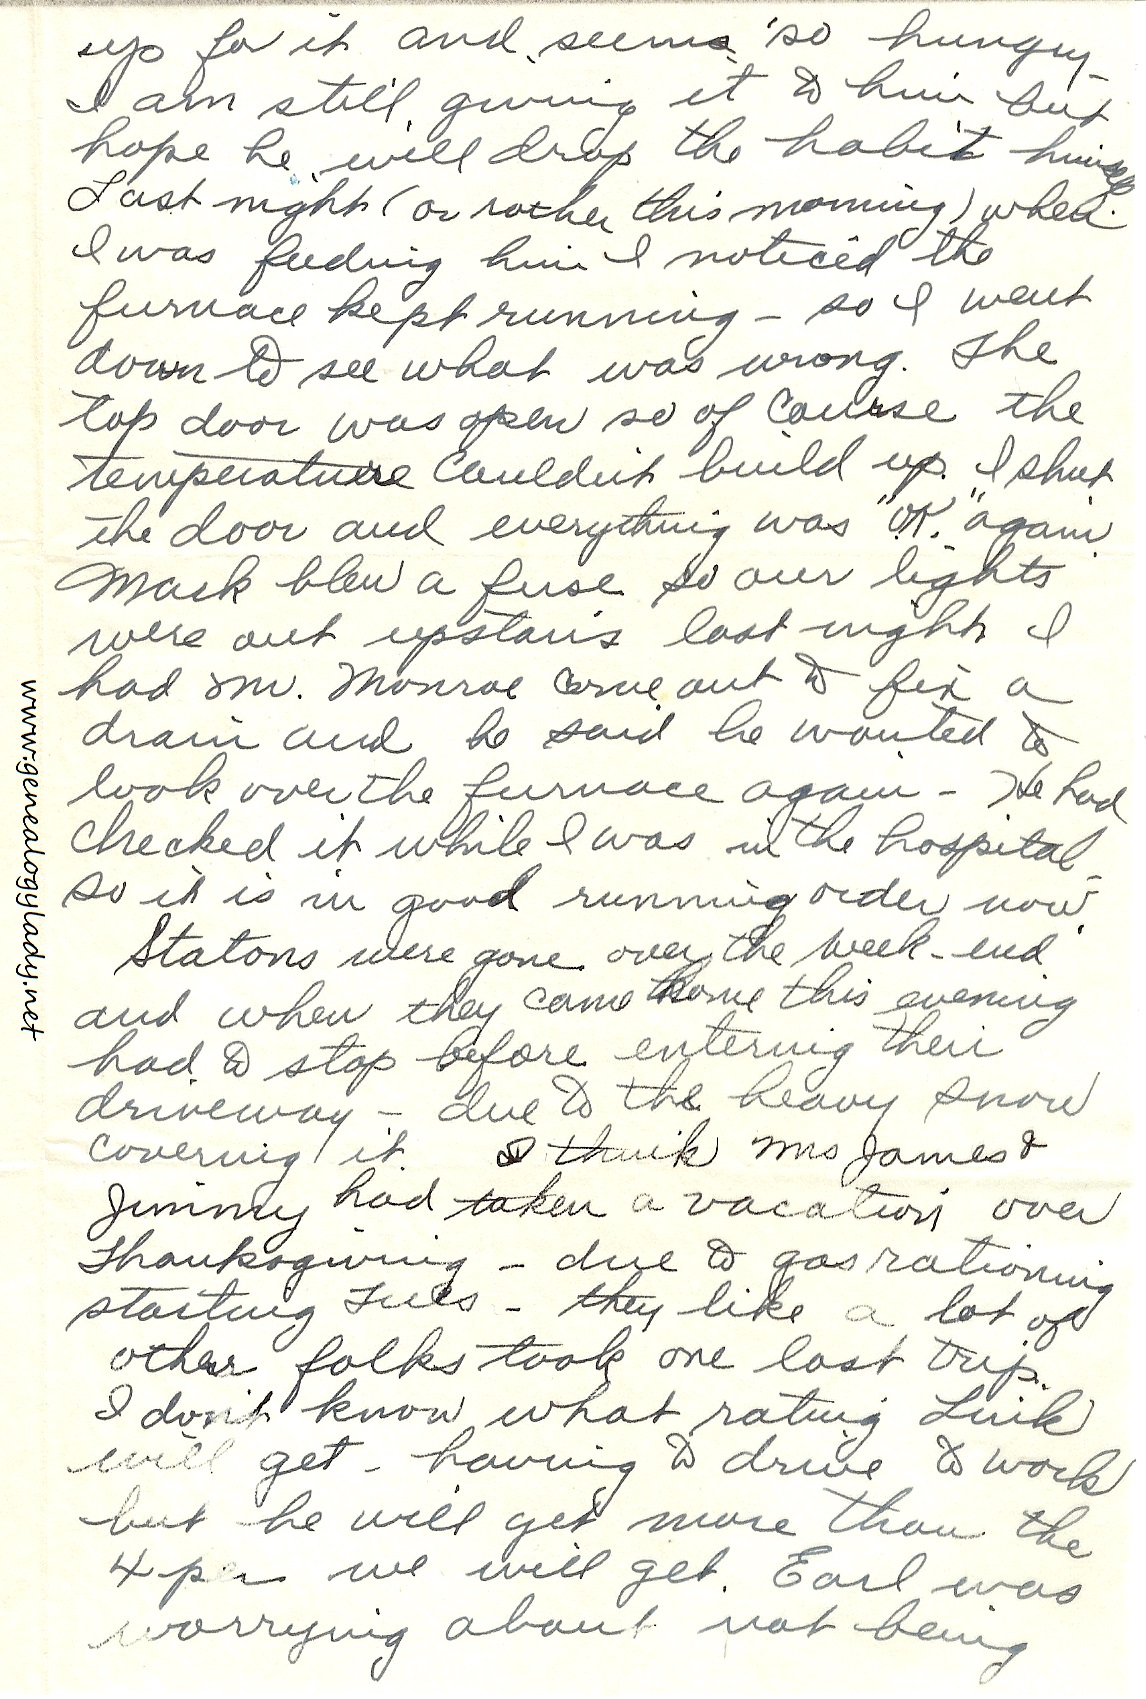 up for it and seems so hungry
I am still giving it to him but
hope he will drop the habit himself
Last night (or rather this morning) when
I was feeding him I noticed the
furnace kept running - so I went
down to see what was wrong. The
top door was open so of course the
temperature couldn't build up. I shut
the door and everything was "OK." again
Mark blew a fuse so our lights
were out upstairs last night I
had Mr. Monroe come out to fix a
drain and he said he wanted to
look over the furnace again - He had
checked it while I was in the hospital -
so it is in good running order now.
Statons were gone over the week-end
and when they came home this evening
had to stop before entering their
driveway - due to the heavy snow
covering it. I think Mrs James &
Jimmy had taken a vacation over
Thanksgiving - due to gas rationing
starting Tues - they like a lot of
other folks took one last trip.
I don't know what rating Link
will get - having to drive to work
but he will get more than the
4 per we will get. Earl was
worrying about not being
www.genealogylady.net